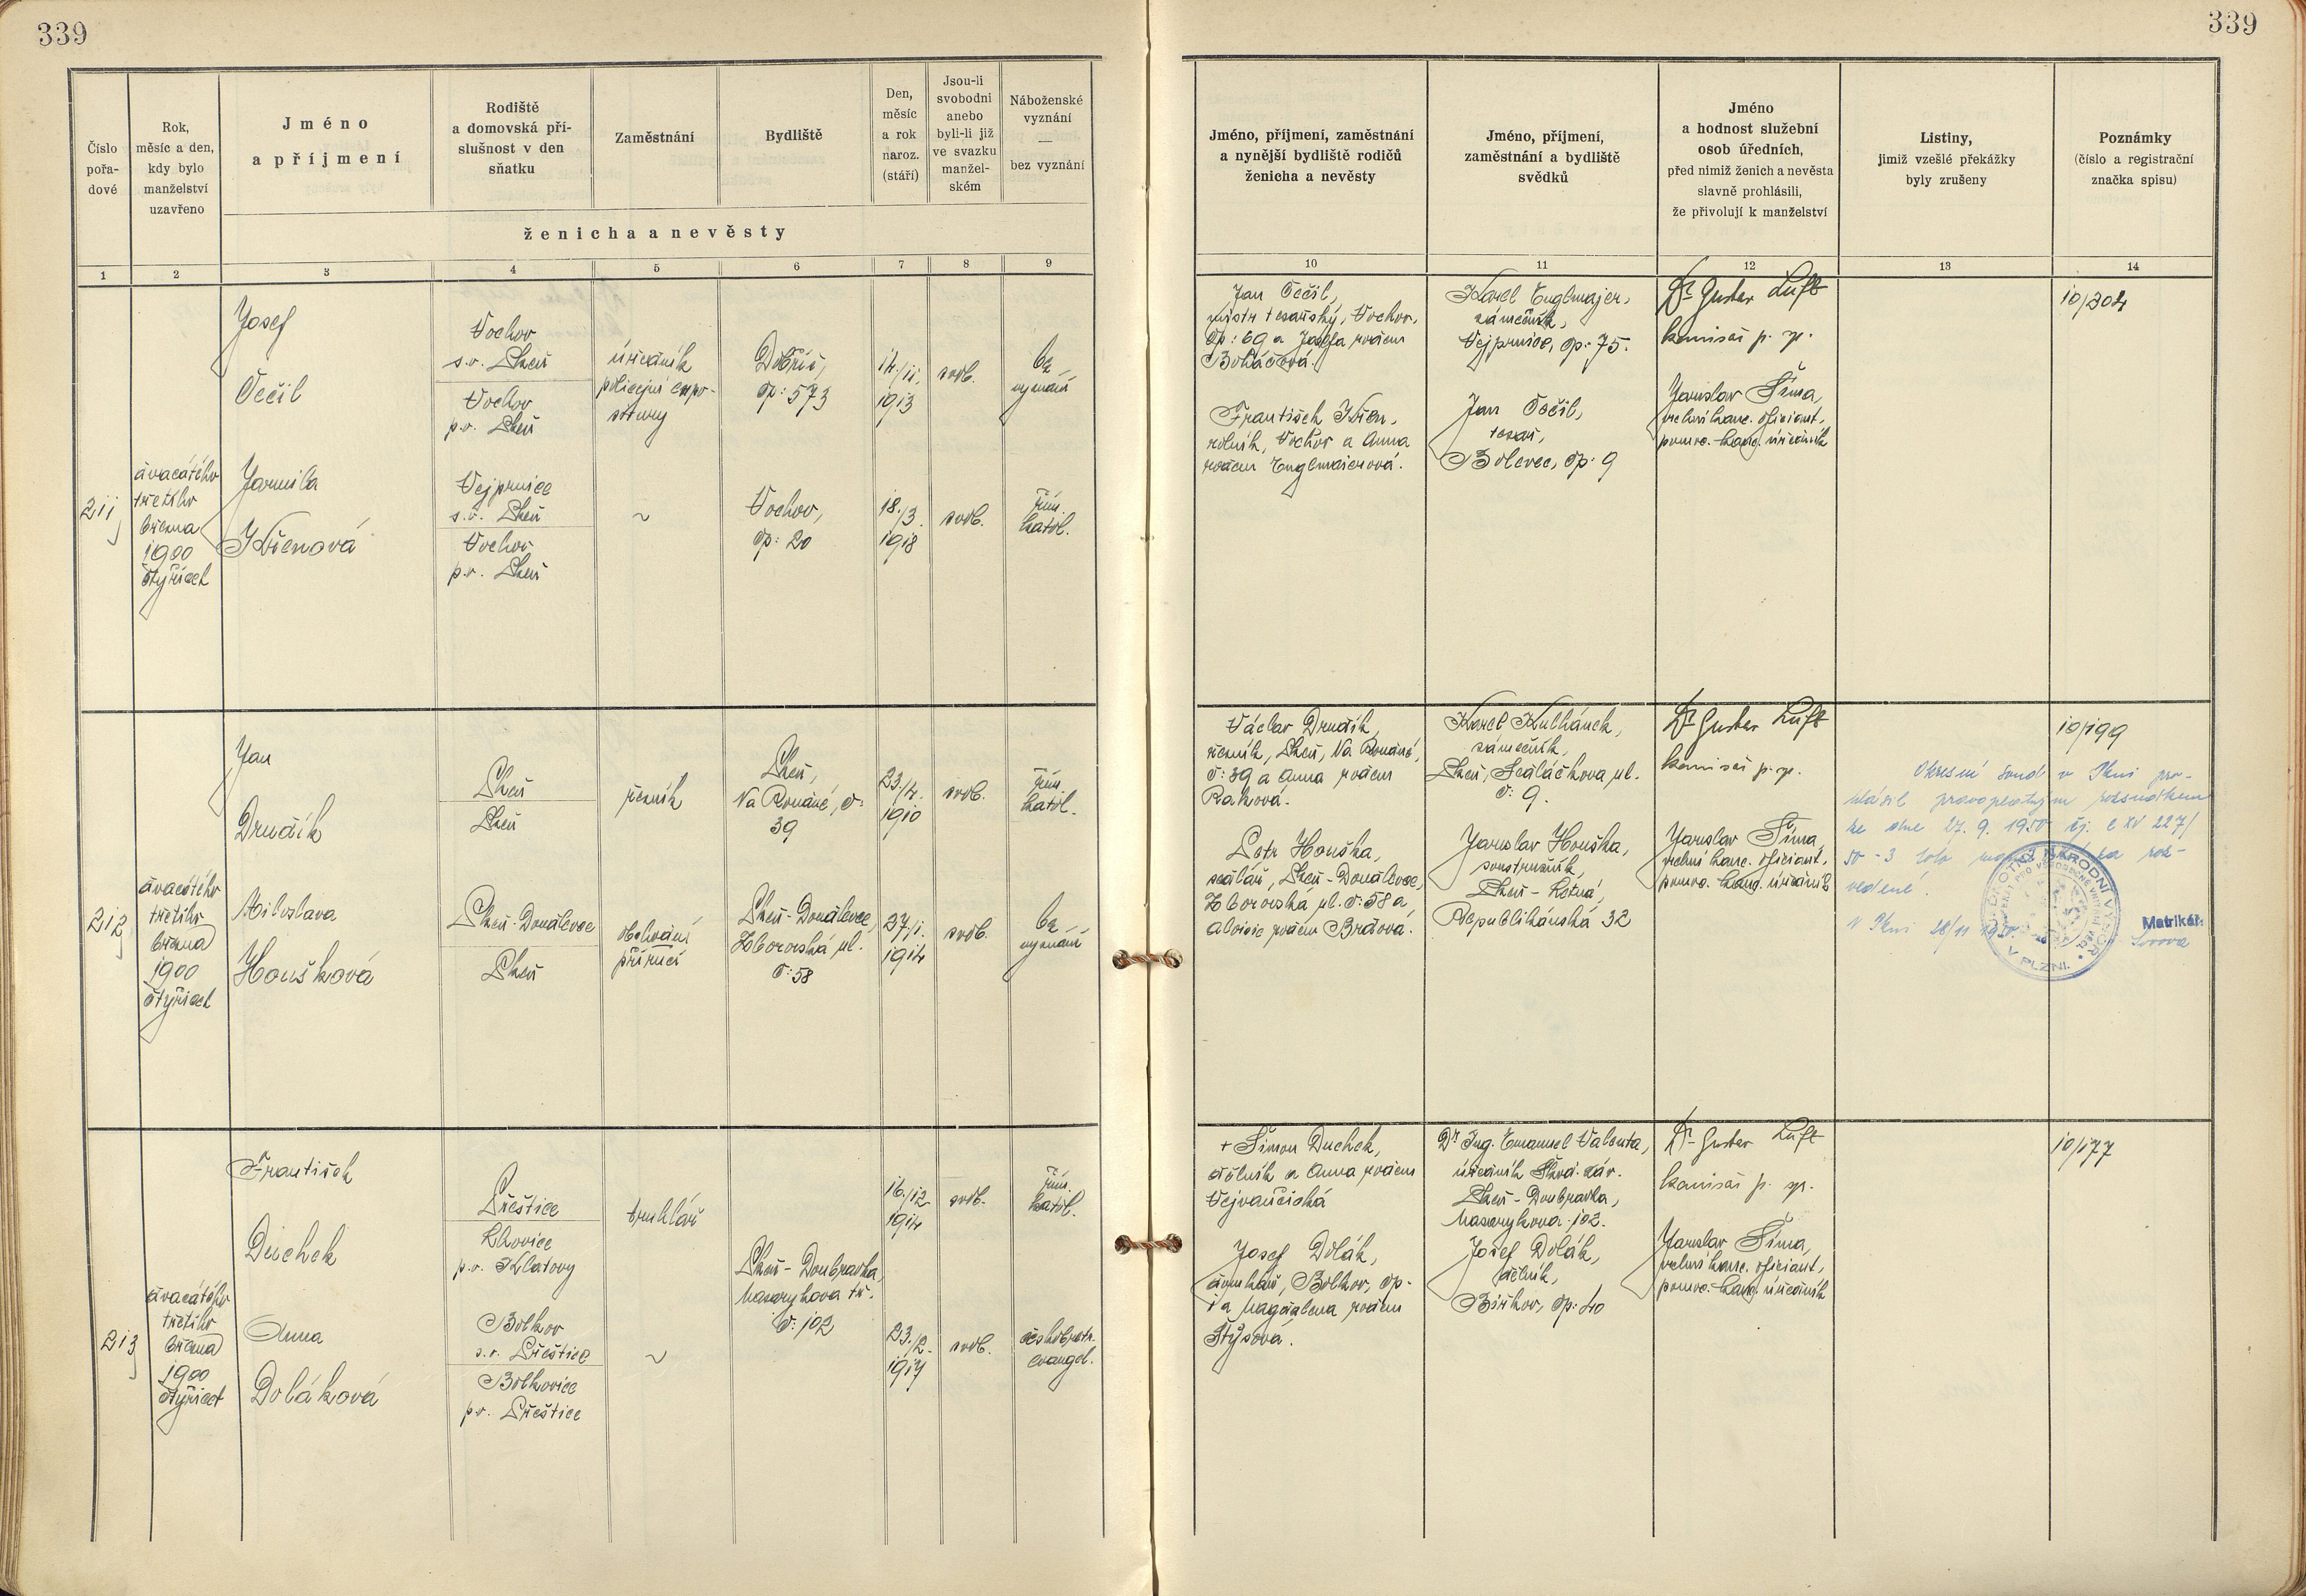 339
339
Číslo
pořa-
dové
Rok,
měsíc a den,
kdy bylo
manželství
uzavřeno
Jméno
a příjmení
Rodiště
a domovská pří-
slušnost v den
sňatku
Zaměstnání
Bydliště
Den,
měsíc
a rok
naroz.
(stáří)
Jsou-li
svobodni
anebo
byli-li již
ve svazku
manžel-
ském
Náboženské
vyznání
—
bez vyznání
ženicha a nevěsty
Jméno, příjmení, zaměstnání
a nynější bydliště rodičů
ženicha a nevěsty
Jméno, příjmení,
zaměstnání a bydliště
svědků
Jméno
a hodnost služební
osob úředních,
před nimiž ženich a nevěsta
slavně prohlásili,
že přivolují k manželství
Listiny,
jimiž vzešlé překážky
byly zrušeny
Poznámky
(číslo a registrační
značka spisu)
1 2 3 4 5 6 7 8 9 10 11 12 13 14
211
dvacátého
třetího
března
1900
čtyřicet
Josef
Čečil
Vochov
s.o. Plzeň
Vochov
p.o. Plzeň
úředník
policejní expo-
situry
Dobříš,
čp: 573
14./11.
1913
svob.
bez
vyznání
Jarmila
Křenová
Vejprnice
s.o. Plzeň
Vochov
p.o. Plzeň
~
Vochov,
čp: 20
18./3.
1918
svob.
řím.
katol.
Jan Čečil,
mistr tesařský, Vochov,
čp: 69 a Josefa rozen
Boháčová.
František Křen,
rolník, Vochov a Anna
rozen Englmaierová.
Karel Englmajer,
zámečník,
Vejprnice, čp: 75.
Jan Čečil,
tesař,
Bolevec, čp: 9
Dr Gustav Luft
komisař p. sp.
Jaroslav Šíma,
vrchní kanc. oficiant,
pomoc. kanc. úředník
10/204
212
dvacátého
třetího
března
1900
čtyřicet
Jan
Drudík
Plzeň
Plzeň
řezník
Plzeň,
Na Roudné, č:
39
23./4.
1910
svob.
řím.
katol.
Miloslava
Houšková
Plzeň-Doudlevce
Plzeň
obchodní
příručí
Plzeň-Doudlevce,
Zborovská ul.
č: 58
27./1.
1914
svob.
bez
vyznání
Václav Drudík,
řezník, Plzeň, Na Roudné,
č: 39 a Anna rozen
Raková.
Petr Houška,
sedlář, Plzeň-Doudlevce,
Zborovská ul. č: 58 a
Aloisie rozen Brdová.
Karel Kulhánek,
zámečník,
Plzeň, Sedláčkova ul.
č: 9.
Jaroslav Houška,
soustružník,
Plzeň - Letná,
Republikánská 32
Dr Gustav Luft
komisař p. sp.
Jaroslav Šíma,
vrchní kanc. oficiant,
pomoc. kanc. úředník
Okresní soud v Plzni pro-
hlásil pravoplatným rozsudkem
ze dne 27. 9. 1950 čj. C XV 227/
50 - 3 toto manželství za roz-
vedené.
V Plzni 28/11 1950.
V PLZNI.
Matrikář:
10/199
213
dvacátého
třetího
března
1900
čtyřicet
František
Duchek
Přeštice
Lhovice
p.o. Klatovy
truhlář
Plzeň - Doubravka,
Masarykova tř.
č: 102
16./12
1914
svob.
řím.
katol.
Anna
Doláková
Bolkov
s.o. Přeštice
Bolkovice
p.o. Přeštice
~
23./2.
1917
svob.
českobratr.
evangel.
+ Šimon Duchek,
dělník a Anna rozen
Vejvančická
Josef Dolák,
domkář, Bolkov, čp-
1 a Magdalena rozen
Štýsová.
Dr Ing. Emanuel Valenta,
úředník Škod. záv.
Plzeň - Doubravka,
Masarykova 102.
Josef Dolák,
dělník,
Birkov, čp: 40
Dr Gustav Luft
komisař p. sp.
Jaroslav Šíma,
vrchní kanc. oficiant,
pomoc. kanc. úředník
10/177